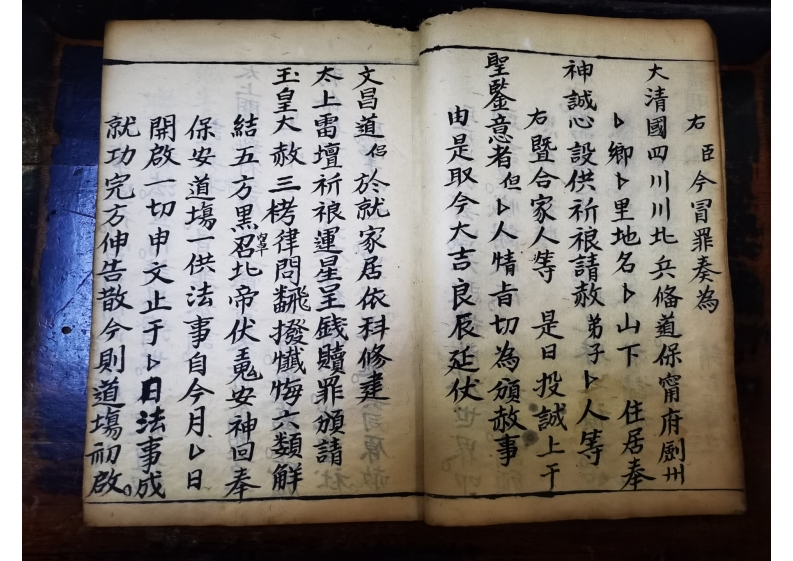 右臣今冒罪奏為
大清國四川川北兵偹道保甯府劍州
卜鄉卜里地名卜山下 住居奉
神誠心設供祈禳請赦弟子卜人等
右暨合家人等 是日投誠上干
聖鑒意者但卜人情旨切為頒赦事
由是取今大吉良辰延伏
文昌道侶於就家居依科修建
太上雷壇祈禳運星呈錢贖罪頒請
玉皇大赦三栲律問飜撥懺悔六類觧
結五方黒召北帝伏䰟安神回奉
保安道塲一供法事自今月卜日
開啟一切申文止于卜日法事成
就功完方伸告散今則道塲初啟。